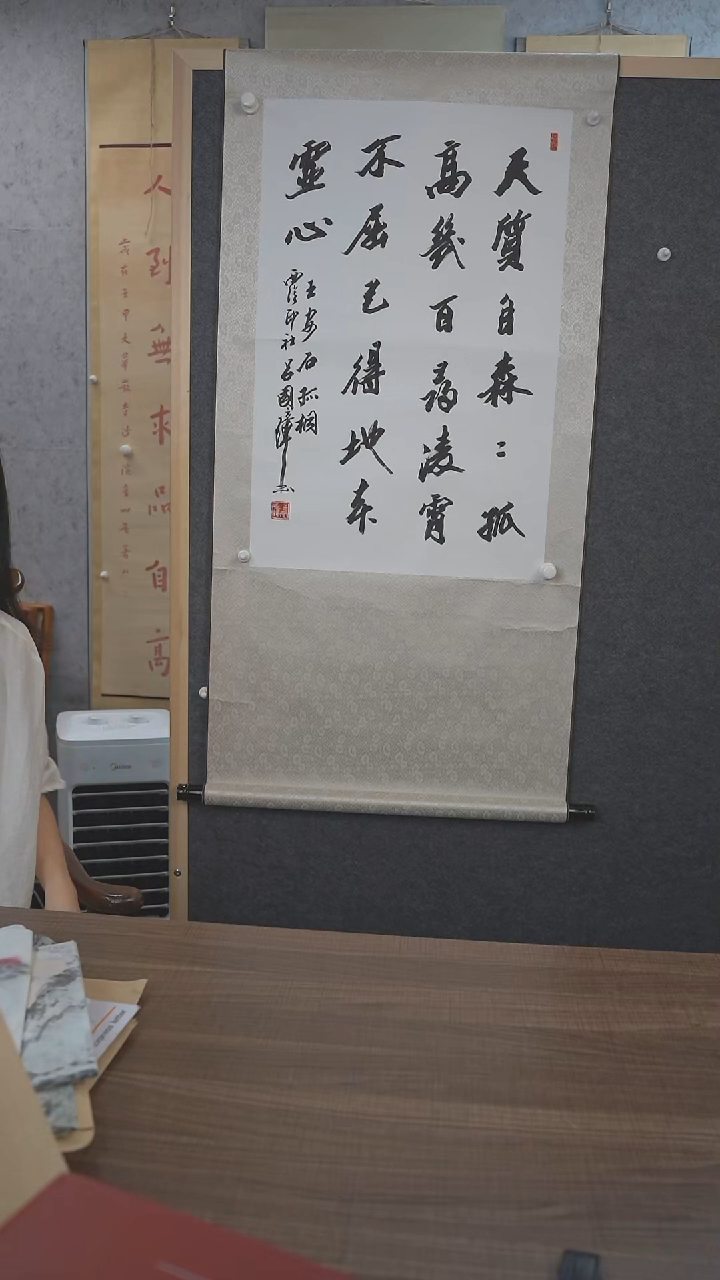 天質自森〻孤
高幾百尋凌霄
不屈己得地本
靈心
王安石孤桐
印社呂國璋
人到無求品自高
Midea